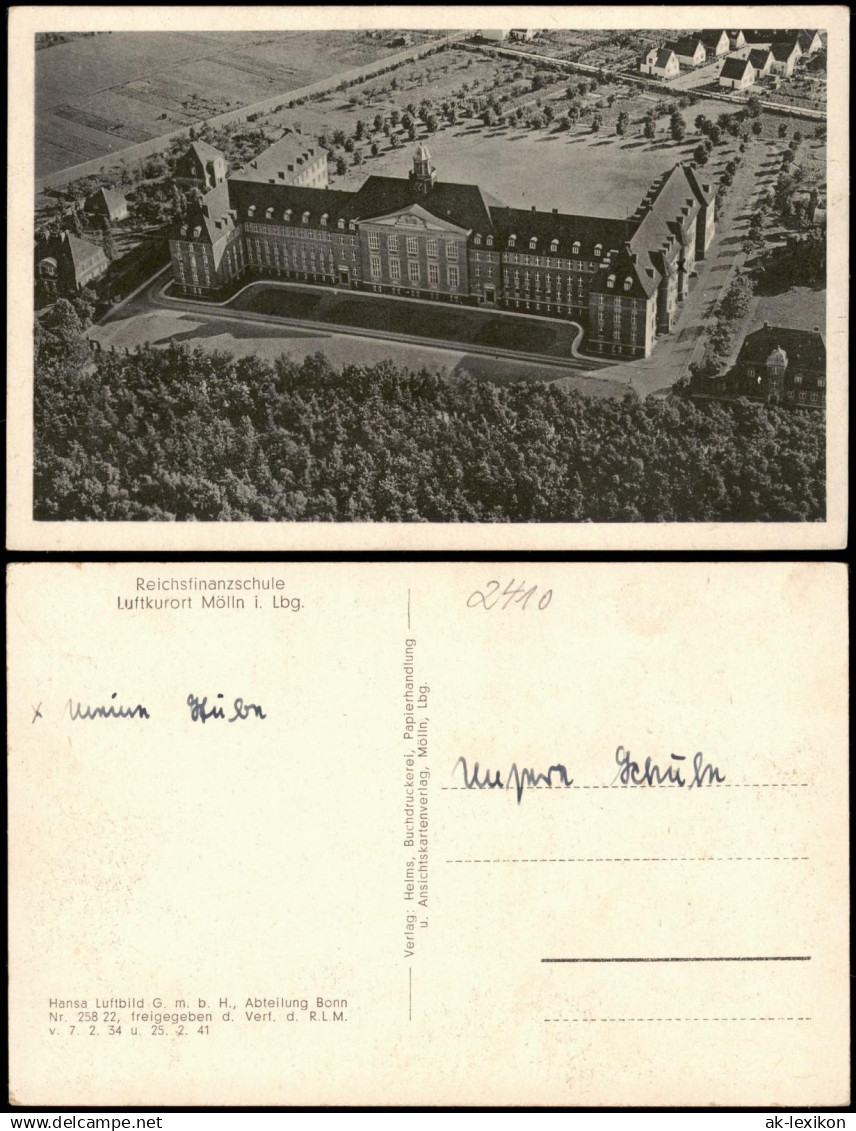 Reichsfinanzschule
Luftkurort Mölln i. Lbg.
2410
x meine Stube
Verlag: Helms, Buchdruckerei, Papierhandlung
u. Ansichtskartenverlag, Mölln, Lbg.
Unsere Schule
Hansa Luftbild G. m. b. H., Abteilung Bonn
Nr. 258 22, freigegeben d. Verf. d. R.L.M.
v. 7. 2. 34 u. 25. 2. 41
www.ansichtskarten-lexikon.de
ak-lexikon